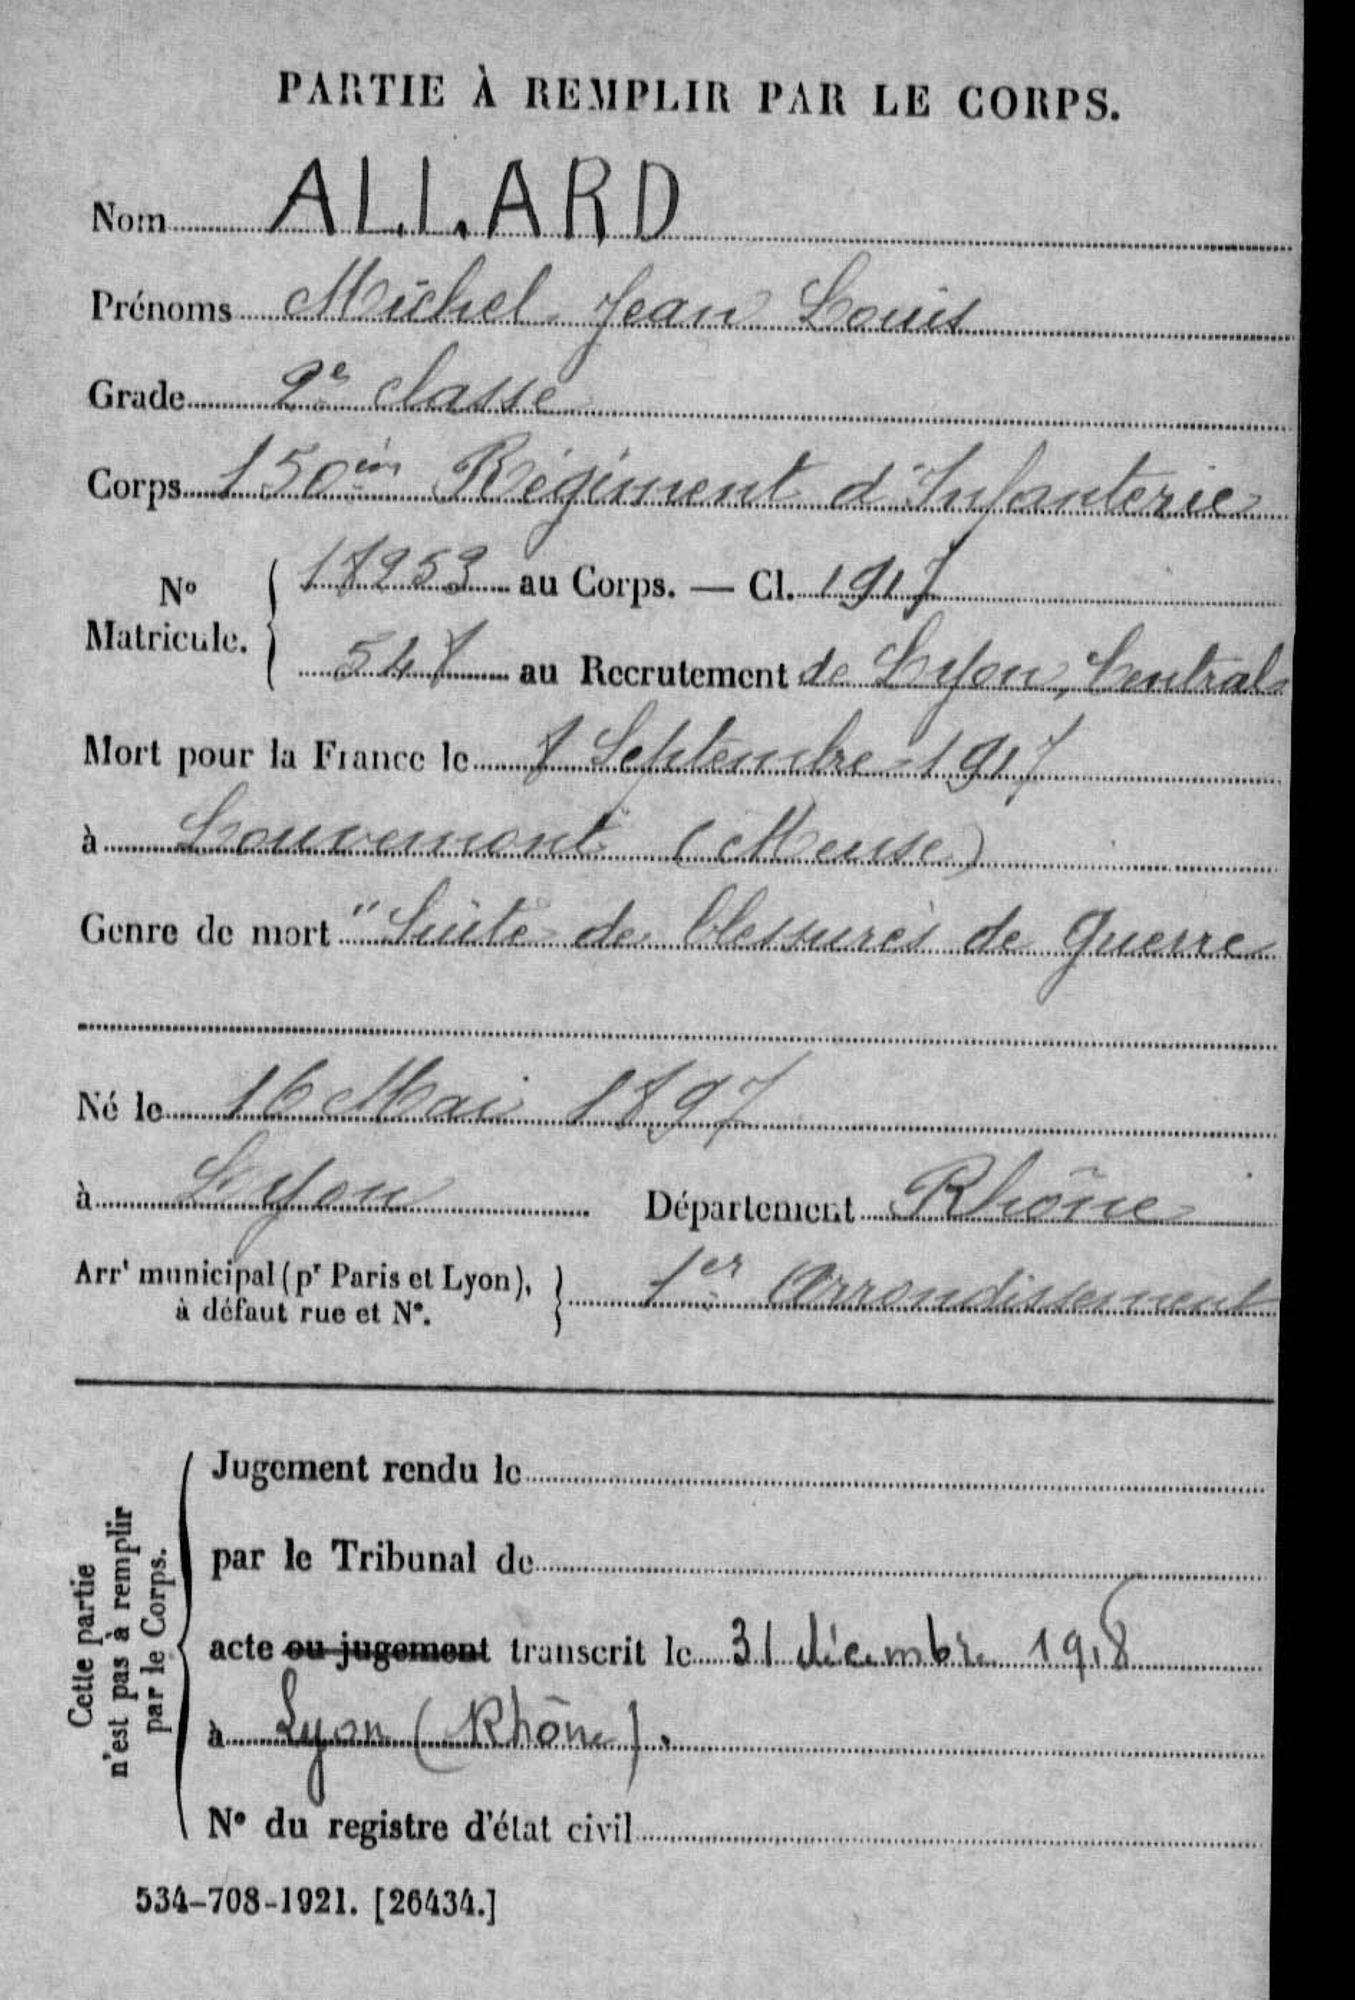 PARTIE À REMPLIR PAR LE CORPS.
Nom ALLARD
Prénoms Michel Jean Louis
Grade 2e classe
Corps 150èm Régiment d'Infanterie
No Matricule. { 18953 au Corps. — Cl. 1917
548 au Recrutement de Lyon, Central
Mort pour la France le 8 Septembre 1917
à Louvemont (Meuse)
Genre de mort "Suite de blessures de Guerre
Né le 16 Mai 1897
à Lyon Département Rhône
Arrt municipal (pr Paris et Lyon), à défaut rue et No. } 1er Arrondissement
Cette partie n'est pas à remplir par le Corps.
Jugement rendu le
par le Tribunal de
acte ou jugement transcrit le 31 décembre 1918
à Lyon (Rhône).
No du registre d'état civil
534-708-1921. [26434.]